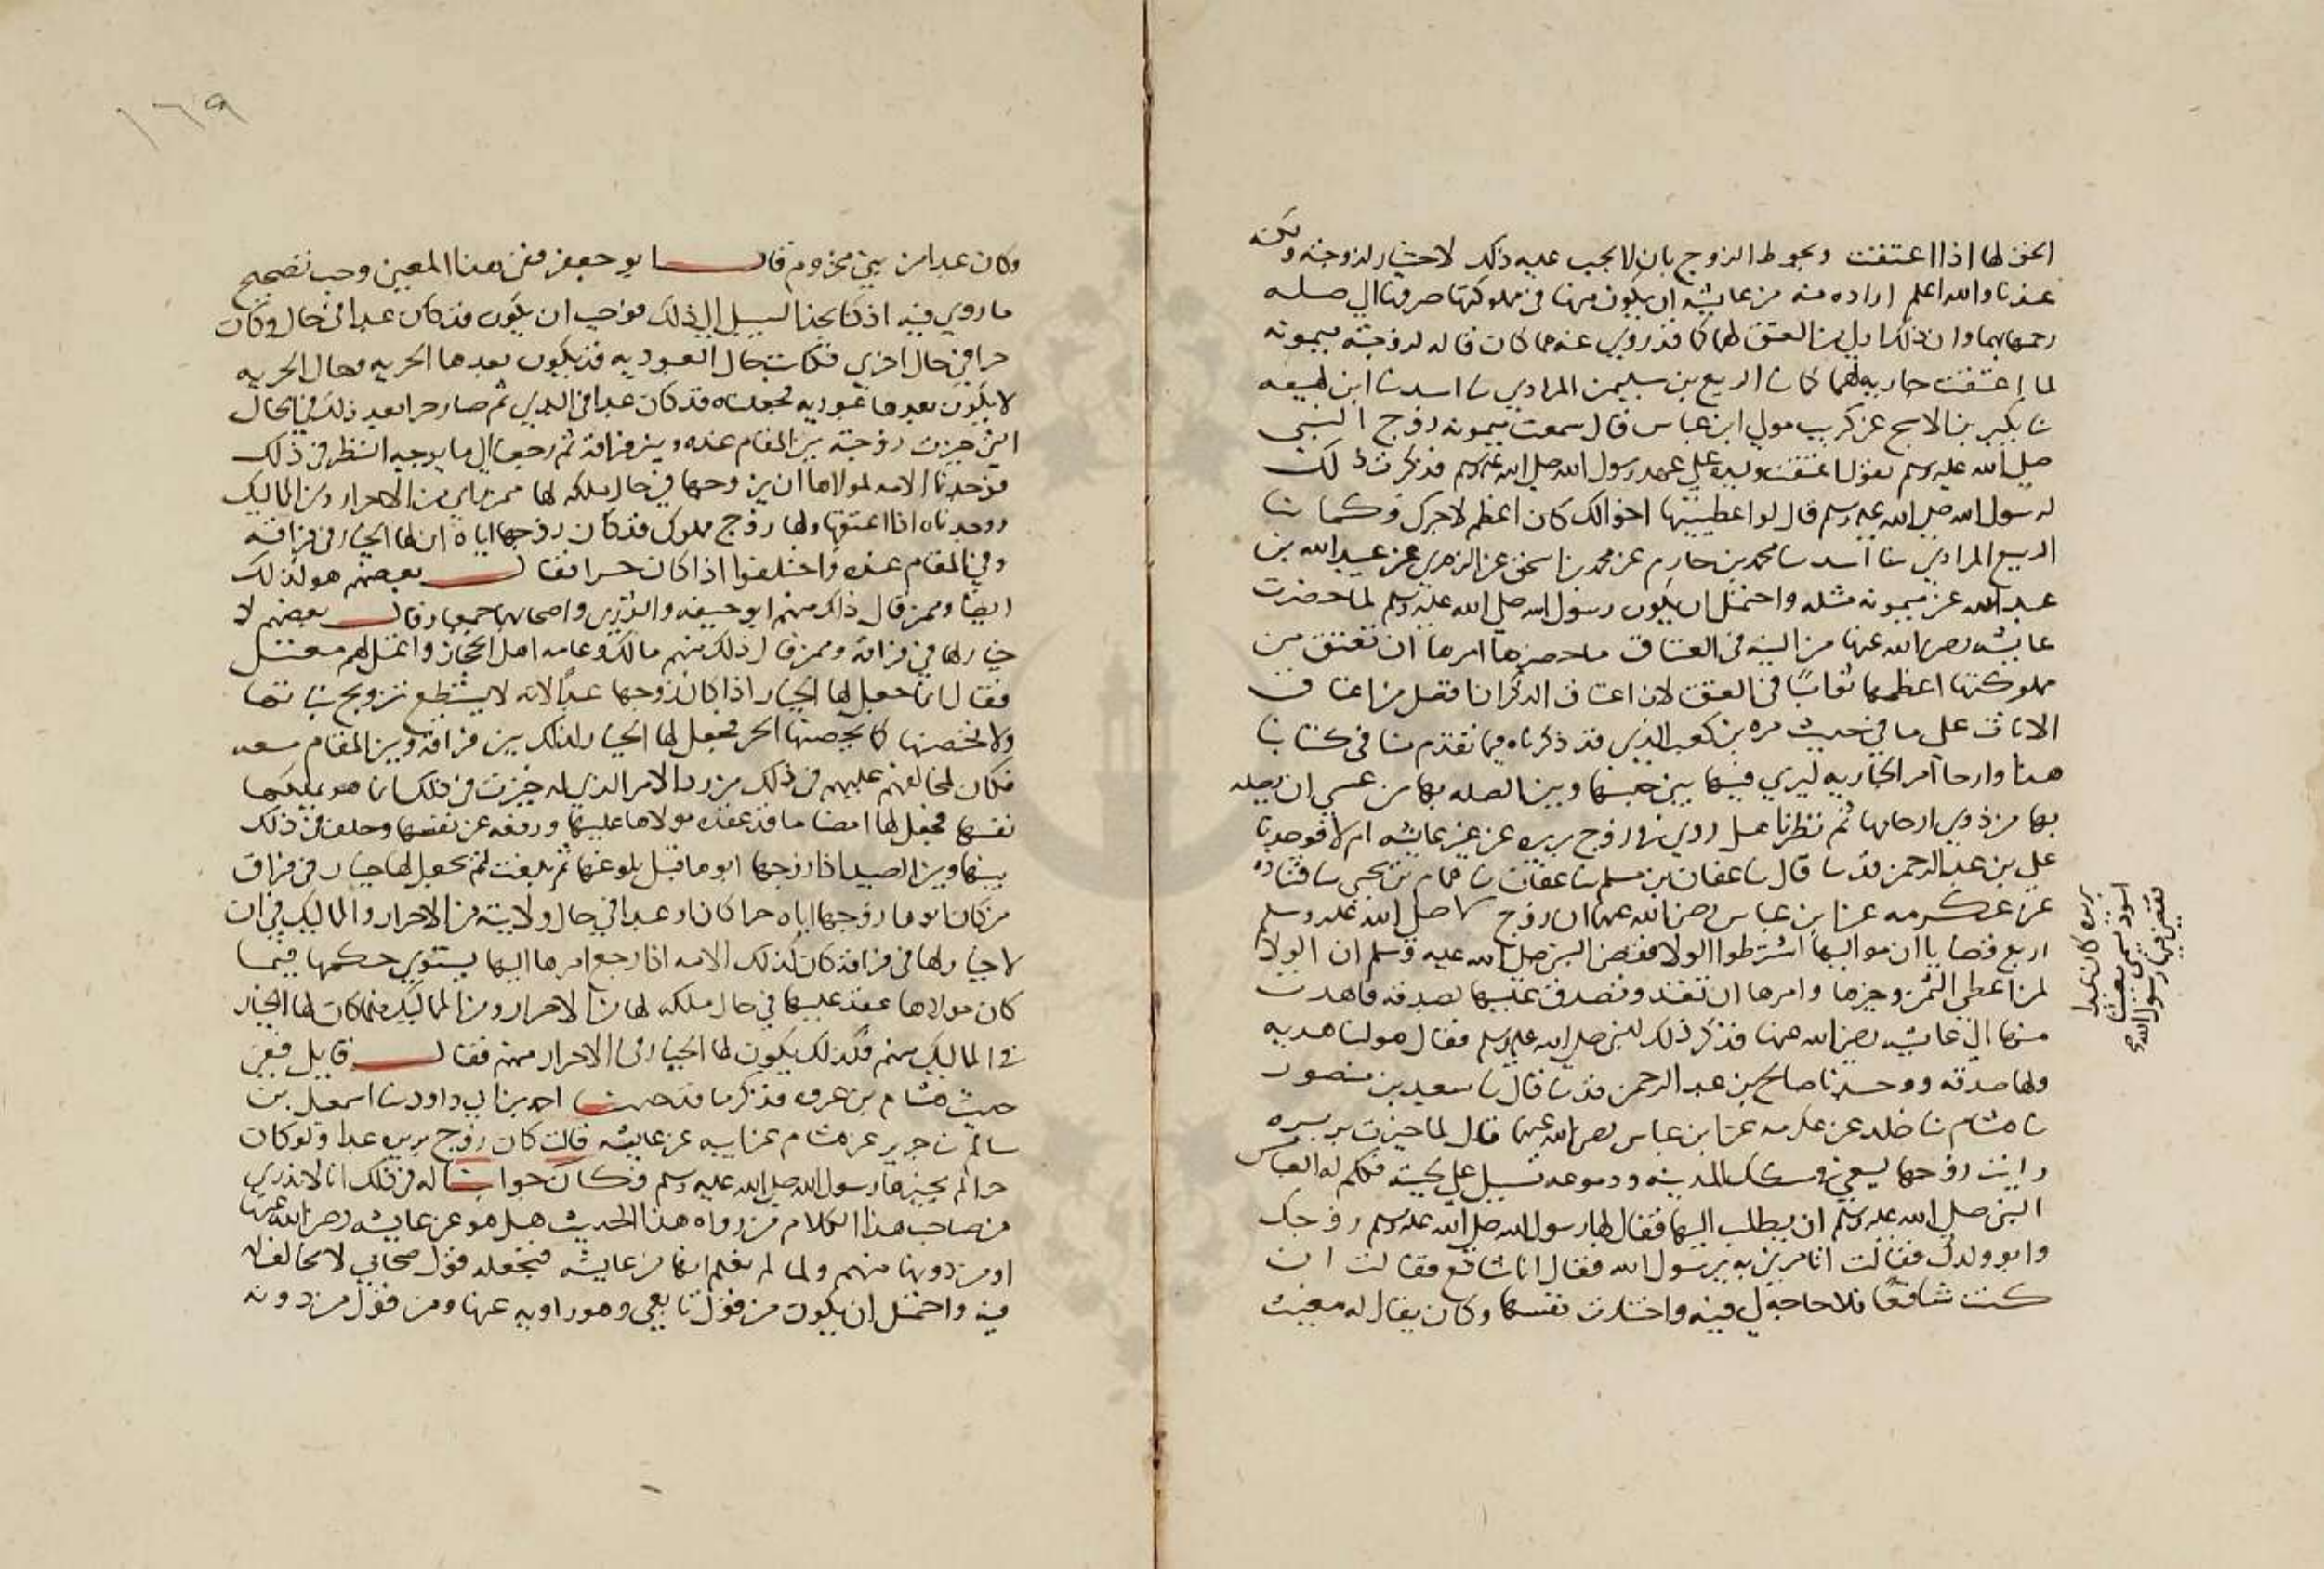 الحق لها اذا اعتقت ويحوط الزوج بان لا يجب عليه ذلك لاختيار لزوجته ولكنه
عندنا والله اعلم اراده منه من عايشه ان يكون منها في مملوكتها صرفها الى صله
رحمها بهما وان ذلك اولى من العتق لهما كما قد روي عنه مما كان قاله لزوجته ميمونه
لما اعتقت جاريه لهما كما نا الربيع بن سليمن المرادي نا اسد نا ابن لهيعه
نا بكير بن الاشج عن كريب مولى ابن عباس قال سمعت ميمونه زوج النبي
صلى الله عليه وسلم تقول اعتقت وليده على عهد رسول الله صلى الله عليه وسلم فذكرت ذلك
لرسول الله صلى الله عليه وسلم قال لو اعطيتها اخوالك كان اعظم لاجرك وكما نا
الربيع المرادي نا اسد نا محمد بن حازم عن محمد بن اسحق عن الزهري عن عبيد الله بن
عبد الله عن ميمونه مثله واحتمل ان يكون رسول الله صلى الله عليه وسلم لما حضرت
عايشه رضي الله عنها من النيه في العتاق ما حضرها امرها ان تعتق من
مملوكتها اعظمهما ثوابا في العتق لان اعتاق الذكران افضل من اعتاق
الاناث على ما في حديث مره بن كعب الذي قد ذكرناه فيما تقدم منا في كتابنا
هذا وارجا امر الجاريه ليري فيها بين حبسها وبين الصله بها من عسى ان يصله
بها من ذوي ارحامها ثم نظرنا هل روي في زوج بريره عن غير عايشه ام لا فوجدنا
علي بن عبد الرحمن قد نا قال نا عفان بن مسلم نا عفان نا همام بن يحيى نا قتاده
عن عكرمه عن ابن عباس رضي الله عنهما ان زوج صلى الله عليه وسلم
اربع قضايا ان مواليها اشترطوا الولا فقضى النبي صلى الله عليه وسلم ان الولا
لمن اعطى الثمن وخيرها وامرها ان تعتد وتصدق عليها بصدقه فاهدت
منها الى عايشه رضي الله عنها فذكر ذلك للنبي صلى الله عليه وسلم فقال هو لنا هديه
ولها صدقه ووجدنا صالح بن عبد الرحمن قد نا قال نا سعيد بن منصور
نا هشام نا خلد عن عكرمه عن ابن عباس رضي الله عنهما قال لما خيرت بريره
رايت زوجها يسعى في سكك المدينه ودموعه تسيل على لحيته فكلم له العباس
النبي صلى الله عليه وسلم ان يطلب اليها فقال لها رسول الله صلى الله عليه وسلم زوجك
وابو ولدك فقالت اتامرني به يرسول الله فقال انا شافع فقالت ان
كنت شافعا فلا حاجه لي فيه واختارت نفسها وكان يقال له مغيث
بريره كان عبدا
اسود يسمى مغيثا
فقضى فيها رسول الله
١٦٩
وكان عبدا من بني مخزوم قال ابو جعفر ففي هذا المعنى وجب تصحيح
ما روي فيه اذ كنا نجد السبيل الى ذلك فوجب ان يكون قد كان عبدا في حال وكان
حرا في حال اخرى فكانت حال العبوديه قد يكون بعدها الحريه وحال الحريه
لا يكون بعدها عبوديه فجعلناه قد كان عبدا في البدي ثم صار حرا بعد ذلك في الحال
التي خيرت زوجته بين المقام عنده وبين فراقه ثم رجعنا الى ما يوجبه النظر في ذلك
فوجدنا الامه لمولاها ان يزوجها في حال ملكه لها ممن راي من الاحرار ومن المماليك
ووجدناه اذا اعتقها ولها زوج مملوك قد كان زوجها اياه ان لها الخيار في فراقه
وفي المقام عنده واختلفوا اذا كان حرا فقال بعضهم هو كذلك
ايضا وممن قال ذلك منهم ابو حنيفه والثوري واصحابهما جميعا وقال بعضهم لا
خيار لها في فراقه وممن قال ذلك منهم مالك وعامه اهل الحجاز واعتل لهم معتل
فقال انما جعل لها الخيار اذا كان زوجها عبدا لانه لا يستطيع تزويج بناتها
ولا تحصنها كما يحصنها الحر فجعل لها الخيار لذلك بين فراقه وبين المقام معه
فكان لمخالفهم عليهم في ذلك من رد الامر الذي له خيرت في ذلك انما هو بملكها
نفسها فجعل لها امضا ما قد عقده مولاها عليها ورفعه عن نفسها وخلف في ذلك
بينها وبين الصبيه اذا زوجها ابوها قبل بلوغها ثم بلغت فلم يجعل لها خيار في فراق
من كان ابوها زوجها اياه حرا كان او عبدا في حال ولايته من الاحرار والمماليك في ان
لا خيار لها في فراقه كان كذلك الامه اذا رجع امرها اليها يستوي حكمها فيما
كان مولاها عقد عليها في حال ملكه لها من الاحرار ومن المماليك فلما كان لها الخيار
في المماليك منهم فكذلك يكون لها الخيار في الاحرار منهم فقال قايل ففي
حديث هشام بن عروه فذكر ما قد حدثنا احمد بن ابي داود نا اسمعيل بن
سالم نا جرير عن هشام عن ابيه عن عايشه قالت كان زوج بريره عبدا ولو كان
حرا لم يخيرها رسول الله صلى الله عليه وسلم فكان جوابنا له في ذلك انا لا ندري
من صاحب هذا الكلام من رواه هذا الحديث هل هو عن عايشه رضي الله عنها
او من دونها منهم ولما لم نعلم انها من عايشه فنجعله قول صحابي لا مخالف له
فيه واحتمل ان يكون من قول تابعي وهو راويه عنها ومن قول من دونه